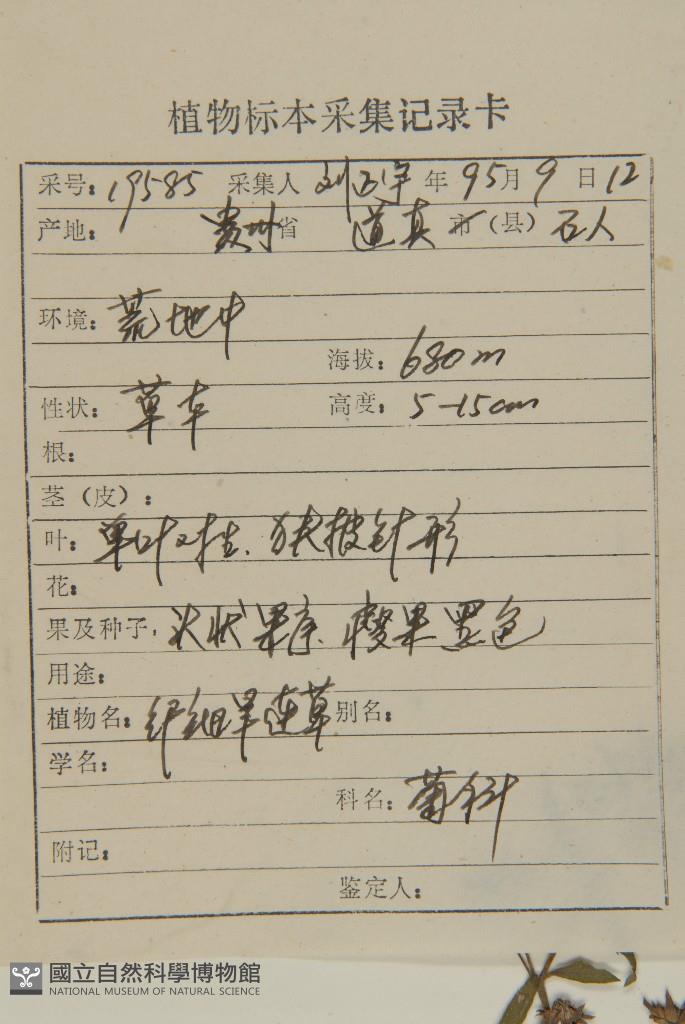 植物标本采集记录卡
采号: 19585 采集人 刘正宇 年 95 月 9 日 12
产地: 贵州 省 道真 市 (县) 石人
环境: 荒地中
海拔: 680m
性状: 草本 高度: 5-15cm
根:
茎 (皮):
叶: 单叶对生、狭披针形
花:
果及种子: 头状果序、瘦果黑色
用途:
植物名: 纤细旱莲草 别名:
学名:
科名: 菊科
附记:
鉴定人:
國立自然科學博物館
NATIONAL MUSEUM OF NATURAL SCIENCE